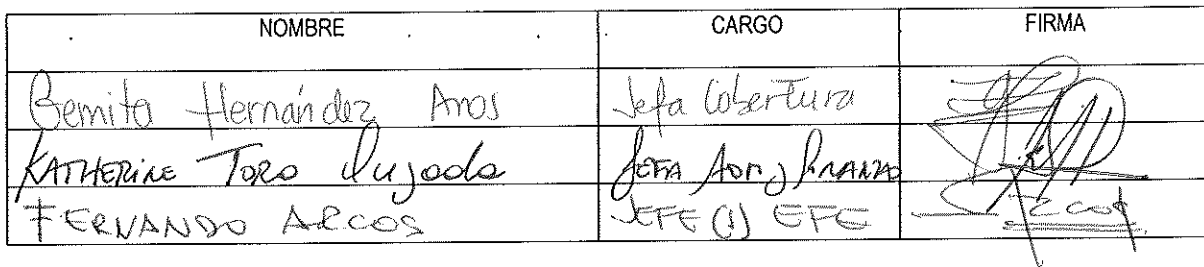 NOMBRE CARGO FIRMA
Bernita Hernández Aros Jefa Cobertura
KATHERINE TORO Quijada JEFA Adm y FINANZAS
FERNANDO ARCOS JEFE (I) EFE Arcos